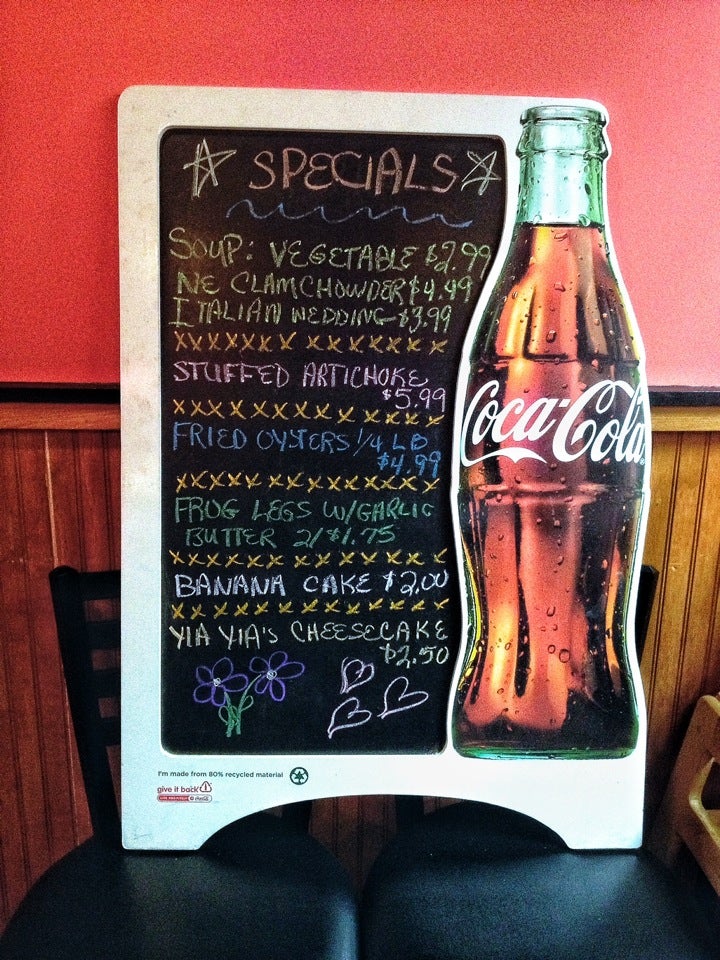 SPECIALS
SOUP: VEGETABLE $2.99
NE CLAM CHOWDER $4.99
ITALIAN WEDDING $3.99
XXXXXXX XXXXXXX
STUFFED ARTICHOKE
$5.99
XXXXXXXXX XXXX
FRIED OYSTERS 1/4 LB
$4.99
XXXXXXXXXXXXXX
FRUG LEGS W/GARLIC
BUTTER 2/$1.75
XXXXXXXXXXXXXX
BANANA CAKE $2.00
XXXXXXXXXXXXXX
YIA YIA'S CHEESECAKE
$2.50
Coca-Cola
I'm made from 80% recycled material
give it back